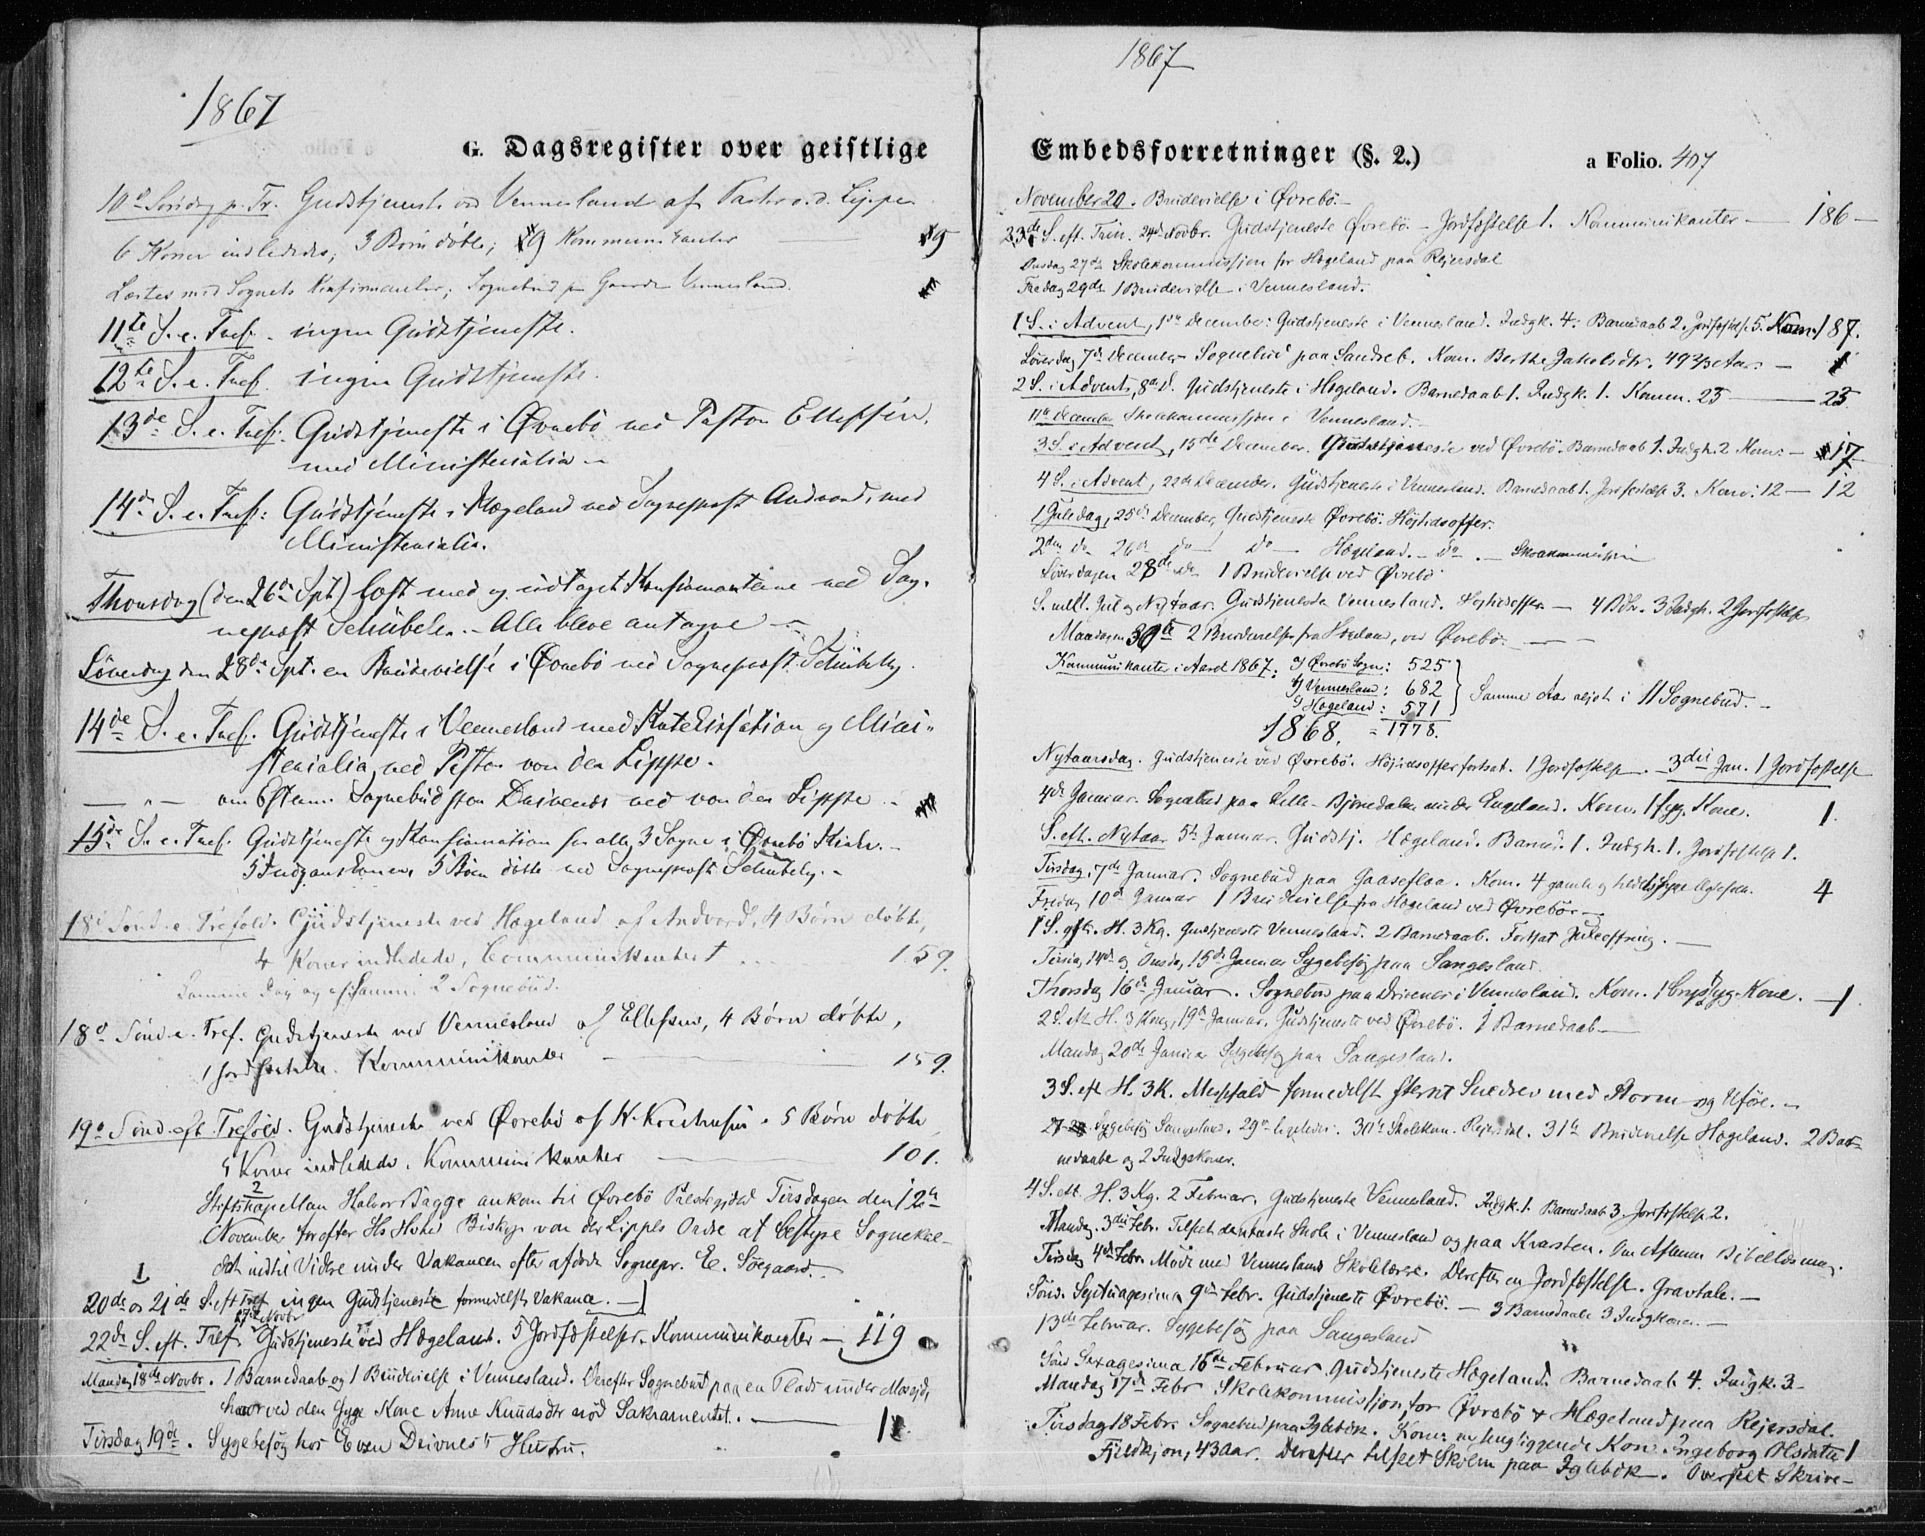 1867
G. Dagsregister over geistlige
10de Søndag p. Tr. Gudstjeneste ved Vennesland af Pastor v. d. Lippe
6 Koner indledede, 3 Børn døbte; 9 Kommunikanter 9
Læstes med Sognets Konfirmanter; Sognebud paa Gaarden Vennesland.
11te S. e. Tref. ingen Gudstjeneste.
12te S. e. Tref. ingen Gudstjeneste.
13de S. e. Tref. Gudstjeneste i Øvrebö ved Pastor Ellefsen,
med Ministerialia
14de S. e. Tref: Gudstjeneste i Hægeland ved Sogneprest Andvord, med
Ministerialia.
Thorsdag (den 26de Spt) læst med og udtaget Konfirmanterne ved Sog-
neprest Schübeler. - Alle bleve antagne
Löverdag den 28de Spt. en Brudevielse i Øvrebö ved Sogneprest Schübeler.
14de S. e. Tref. Gudstjeneste i Vennesland med Katekisation og Mini-
sterialia ved Pastor von der Lippe.
— " — om Eftern. Sognebud fra Drivenes ved von der Lippe
15de S. e. Tref. Gudstjeneste og Konfirmation for alle 3 Sogne i Øvrebö Kirke.
5 Indgangskoner, 5 Børn døbte ved Sogneprest Schübeler.
18de Sönd. e. Trefold. Gudstjeneste ved Hægeland af Andvord, 4 Børn døbte,
4 Koner indledede, Communikanter 159.
Samme Dag og Aften 2 Sognebud.
18de Sönd e. Tref. Gudstjeneste ved Vennesland af Ellefsen, 4 Børn døbte,
1 Jordfæstelse. Kommunikanter 159.
19de Sönd. eft. Trefold. Gudstjeneste ved Øvrebö af 5 Børn döbte
5 Koner indledede. Kommunikanter 101.
2
Stiftskapellan Halvor Bagge ankom til Øvrebö Præstegjæld Tirsdagen den 12te
November for efter Hs. Höiærv. Biskop von der Lippes Ordre at bestyre Sognekal-
det indtil Videre under Vakancen efter afdöde Sognepr. E. Söegaard.
1
20de og 21de S. eft Tref ingen Gudstjeneste formedelst Vakance.
17de Novbr
22de S. eft. Tref. Gudstjeneste ved Hægeland. 5 Jordfæstelser. Kommunikanter — 119
Mandag 18de Novbr. 1 Barnedaab og 1 Brudevielse i Vennesland. Derefter Sognebud paa en Plads under
hvorved den syge Kone Anne Knudsdtr nöd Sakramentet. — 1
Tirsdag 19de. Sygebesög hos Even Drivnes's Hustru.
1867
Embedsforretninger (§. 2.)
a Folio. 407
November 20. Brudevielse i Øvrebö.
23de S. eft. Trin. 24de Novbr. Gudstjeneste Øvrebö. - Jordfæstelse 1. Kommunikanter — 186
Onsdag 27de Skolekommission for Hægeland paa Rejersdal
Fredag 29de 1 Brudevielse i Vennesland.
1 S. i Advent, 1ste December: Gudstjeneste i Vennesland. Indgk. 4. Barnedaab 2. Jordfæstels. 5. Kom. 87.
Löverdag 7de December Sognebud paa Sandreb. Kom. Berthe Jakobsdtr. 49 1
2 S. i Advent, 8de D. Gudstjeneste i Hægeland. Barnedaab 1. Indgk. 1. Komm. 25 — 25
11te December Skolekommission i Vennesland.
3 S. i Advent, 15de December. Gudstjeneste ved Øvrebö. Barnedaab 1. Indgk. 2 Kom: — 17
4 S. i Advent, 22de December. Gudstjeneste i Vennesland. Barnedaab 1. Jordfæstelse 3. Kom: 12 — 12
1 Juledag, 25de December, Gudstjeneste Øvrebö. Höjtidsoffer.
2den do 26de do do Hægeland. do
Löverdagen 28de do 1 Brudevielse ved Øvrebö
S. mell. Jul og Nytaar. Gudstjeneste Vennesland. Hojtidsoffer — 4 BDb. 3 Indgk. 2 Jordfæstelse
Mandagen 30te 2 Brudevielser fra Hægeland, ved Øvrebö.
Kommunikanter i Aaret 1867: a) Øvrebö Sogn: 525
b) Vennesland: 682 Samme Aar rejst i 11 Sognebud.
c) Hægeland: 571
1868. = 1778.
Nytaarsdag. Gudstjeneste ved Øvrebö. Höjtidsoffer fortsat. 1 Jordfæstelse. 3die Jan. 1 Jordfæstelse
4de Januar. Sognebud paa Lille-Björndalen under Engeland. Kom. 1 syg Kone. 1.
S. eft. Nytaar 5te Januar. Gudstj. Hægeland. Barned. 1. Indgk. 1. Jordfæstelse 1.
Tirsdag, 7de Januar. Sognebud paa Gaaseflaa. Kom. 4 gamle og 4
Fredag 10de Januar 1 Brudevielse fra Hægeland ved Øvrebö
1 S. eft. H. 3 Kg. Gudstjeneste Vennesland. 2 Barnedaab. Fortsat Juleofring.
Tirsdag 14de og Onsdag 15de Januar Sygebesög paa Sangesland.
Thorsdag 16de Januar. Sognebud paa Drivenes i Vennesland. Kom. 1 brystsyg Kone. — 1.
2 S. eft H. 3 Kong. 19de Januar. Gudstjeneste ved Øvrebö. 1 Barnedaab
Mandag 20de Januar Sygebesög paa Sangesland.
3 S. eft H. 3 K. Messefald formedelst sterkt Snedrev med Storm og Uföre.
27 Sygebesög Sangesland. 29de ligeledes. 30te Skolekom. Rejersdal. 31te Brudevielse Hægeland. 2 Bar-
nedaabe og 2 Indgskoner.
4 S. eft. H. 3 Kg. 2 Februar. Gudstjeneste Vennesland. Indgk. 1. Barnedaab 3. Jordfæstelse 2.
Mandag. 3die Febr. Tilseet den faste Skole i Vennesland og paa Kvarsten. Om Aftenen Bibellæsning.
Tirsdag 4de Febr. Möde med Venneslands Skolelærere. Derefter en Jordfæstelse. Gravtale.
Sönd. Septuagesima 9de Febr. Gudstjeneste Øvrebö. — 3 Barnedaab 3 Indgkoner.
13de Februar. Sygebesög paa Sangesland
Sönd Sexagesima 16de Februar Gudstjeneste Hægeland. Barnedaab 4. Indgk. 3
Mandag 17de Febr Skolekommission for Øvrebö & Hægeland paa Rejersdal.
Tirsdag 18 Febr. Sognebud paa Iglebæk. Kom: en sengliggende Kone Ingeborg Olsdatter 1
Fjeldsjon, 43 Aar. Derefter tilseet Skolen paa Iglebæk. Overseet Skrive-